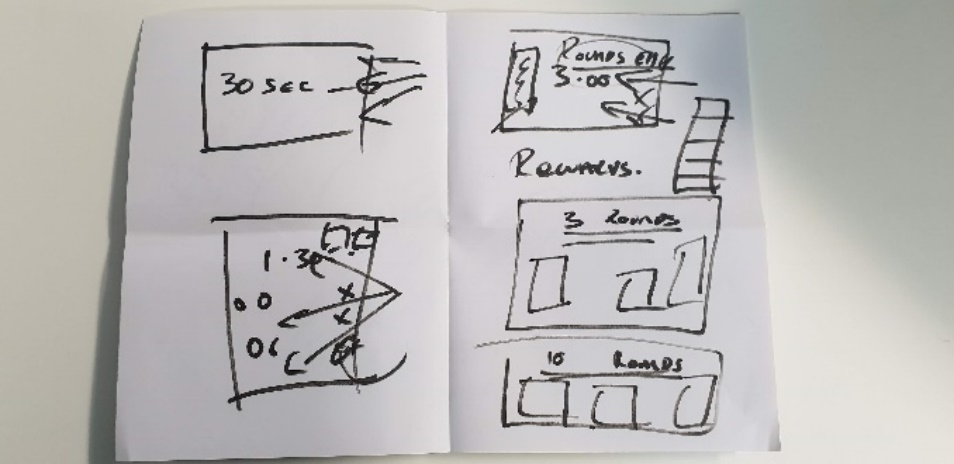 30 SEC
1.30
Rounds end
3.00
Rewards.
3 Rounds
10 Rounds